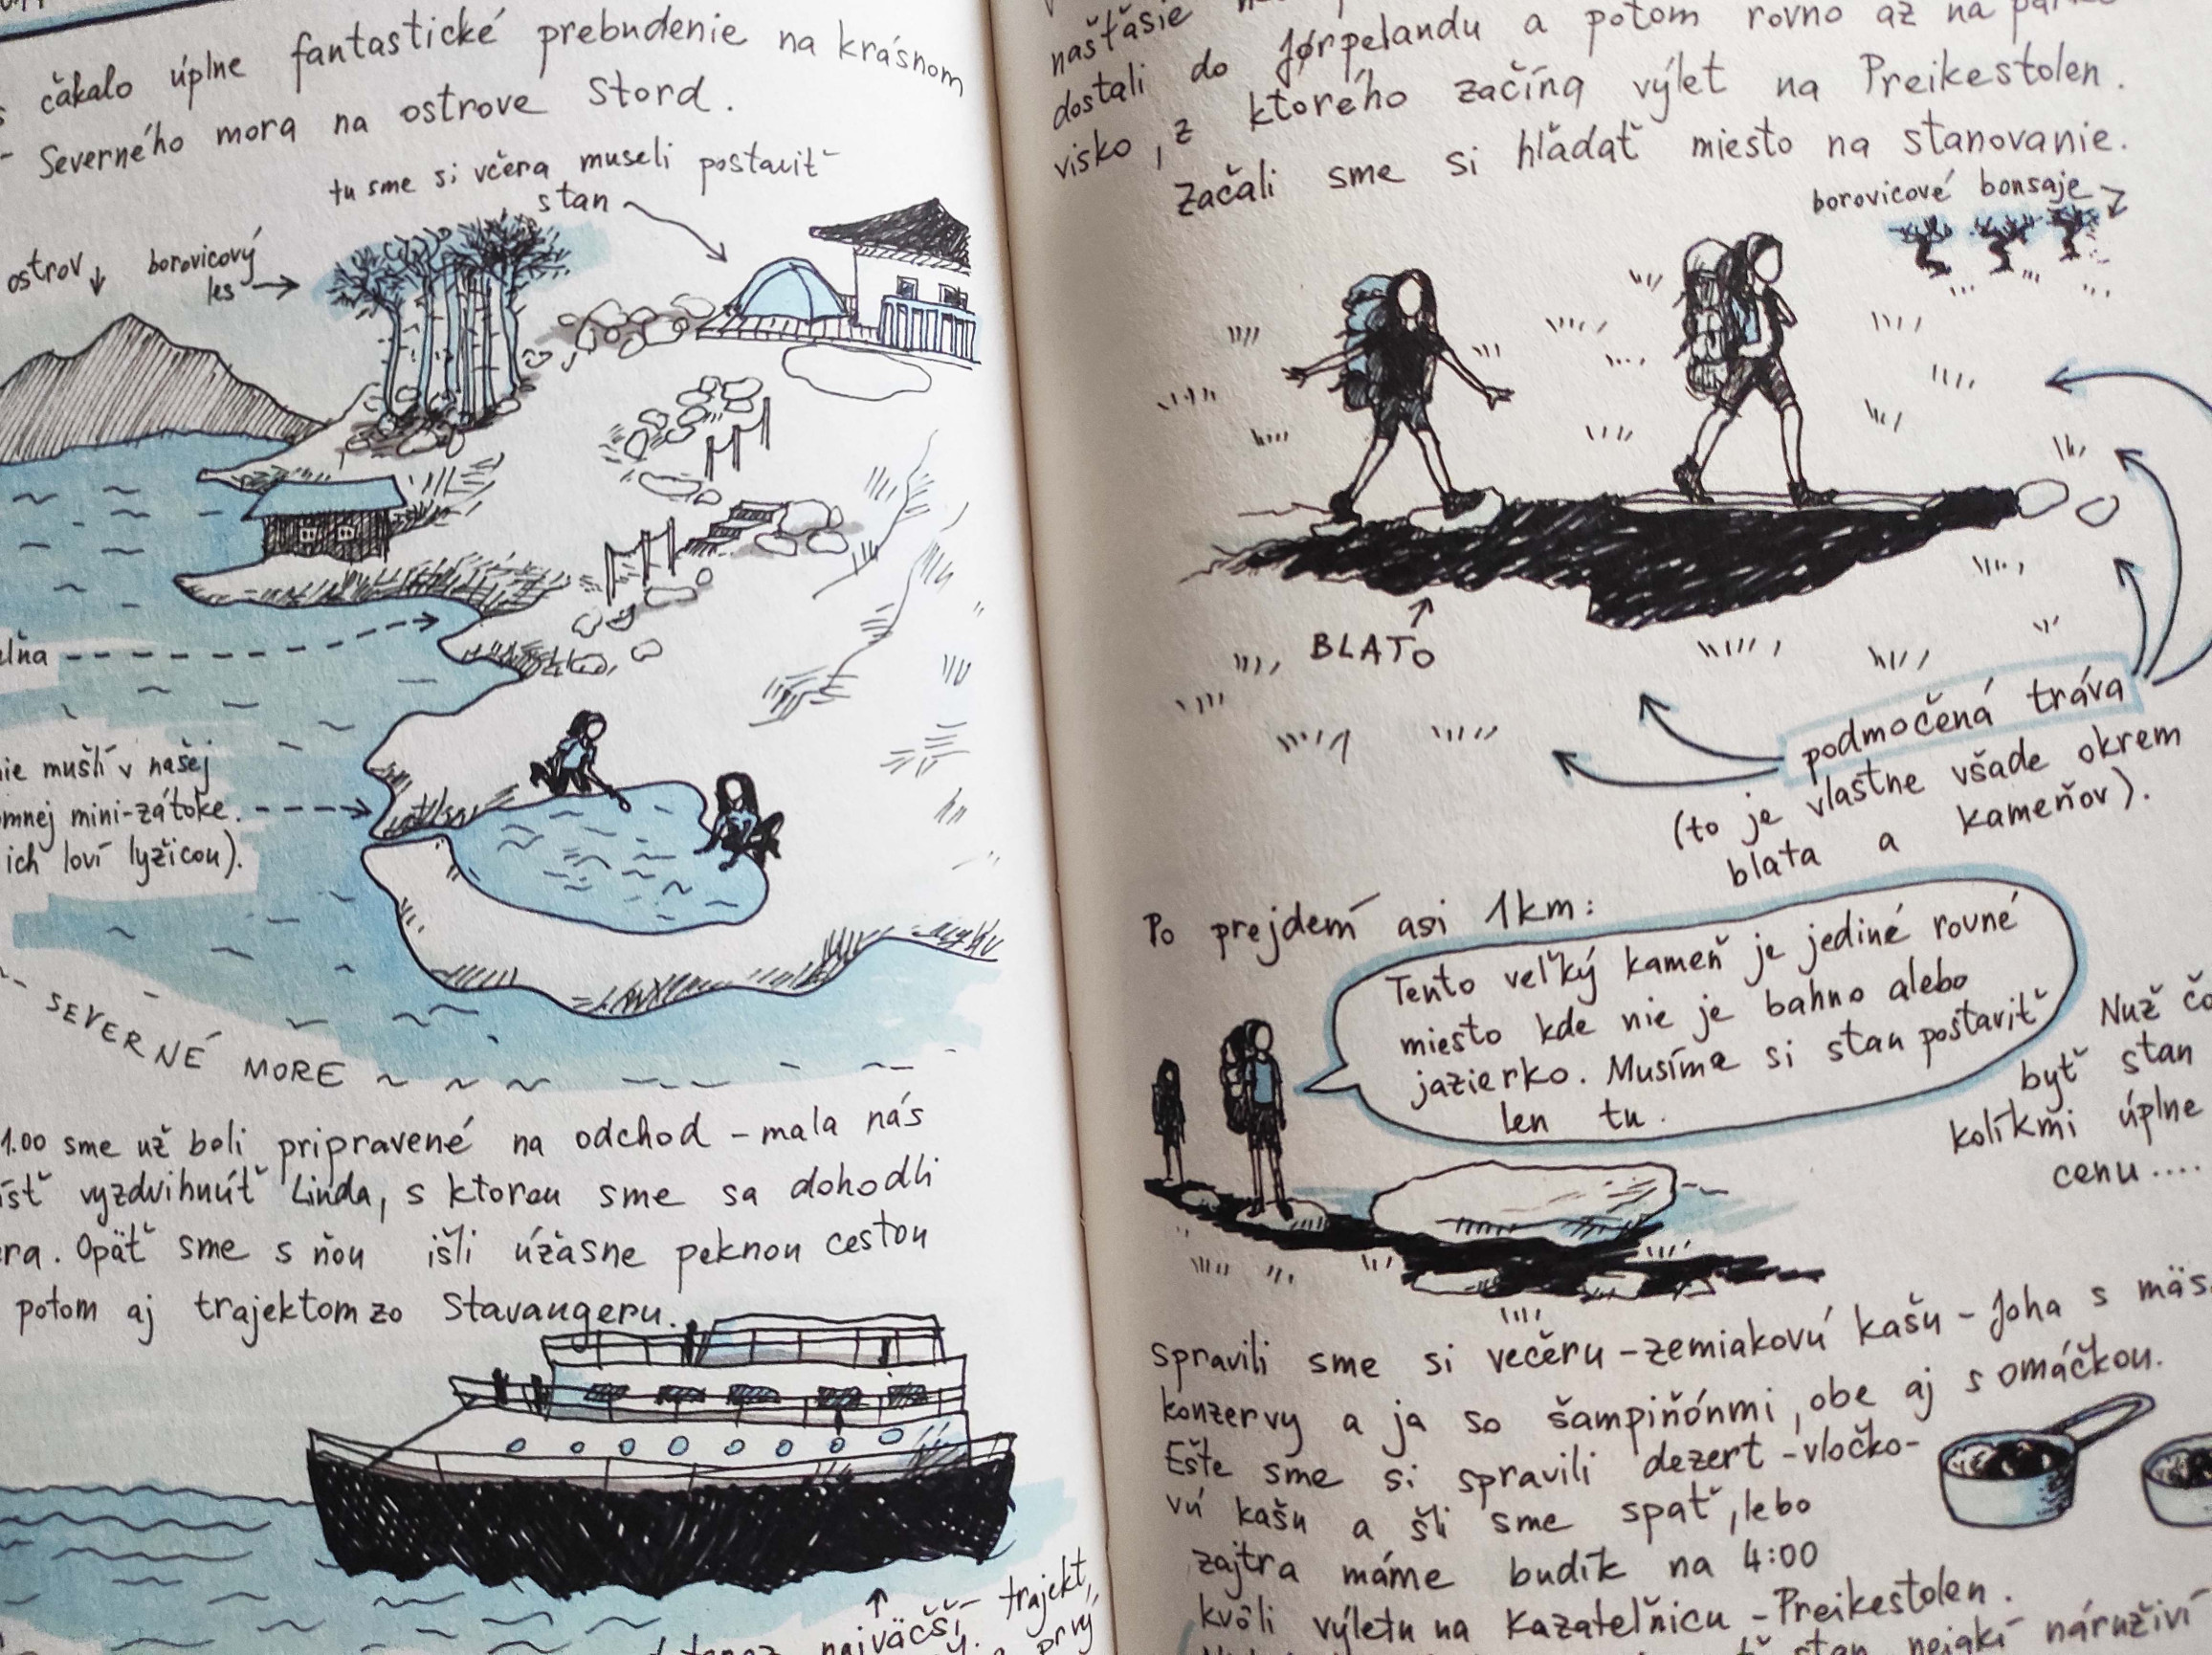 čakalo úplne fantastické prebudenie na krásnom
Severného mora na ostrove Stord.
tu sme si včera museli postaviť
stan
ostrov
borovicový
les
ie mušlí v našej
mnej mini-zátoke.
ich loví lyžicou).
SEVERNÉ MORE
1.00 sme už boli pripravené na odchod - mala nás
ísť vyzdvihnúť Linda, s ktorou sme sa dohodli
ra. Opäť sme s ňou išli úžasne peknou cestou
potom aj trajektom zo Stavangeru.
najväčší trajekt,
prvý
našťasie
dostali do Jørpelandu a potom rovno až na
visko, z ktorého začína výlet na Preikestolen.
Začali sme si hľadať miesto na stanovanie.
borovicové bonsaje
BLATO
podmočená tráva
(to je vlastne všade okrem
blata a kameňov).
Po prejdení asi 1km:
Tento veľký kameň je jediné rovné
miesto kde nie je bahno alebo
jazierko. Musíme si stan postaviť
len tu.
Nuž čo
byť stan
kolíkmi úplne
cenu....
spravili sme si večeru - zemiakovú kašu - Joha s mäs
konzervy a ja so šampiňónmi, obe aj s omáčkou.
Ešte sme si spravili dezert - vločko-
vú kašu a šli sme spať, lebo
zajtra máme budík na 4:00
kvôli výletu na Kazateľnicu - Preikestolen.
stan nejakí náruživí